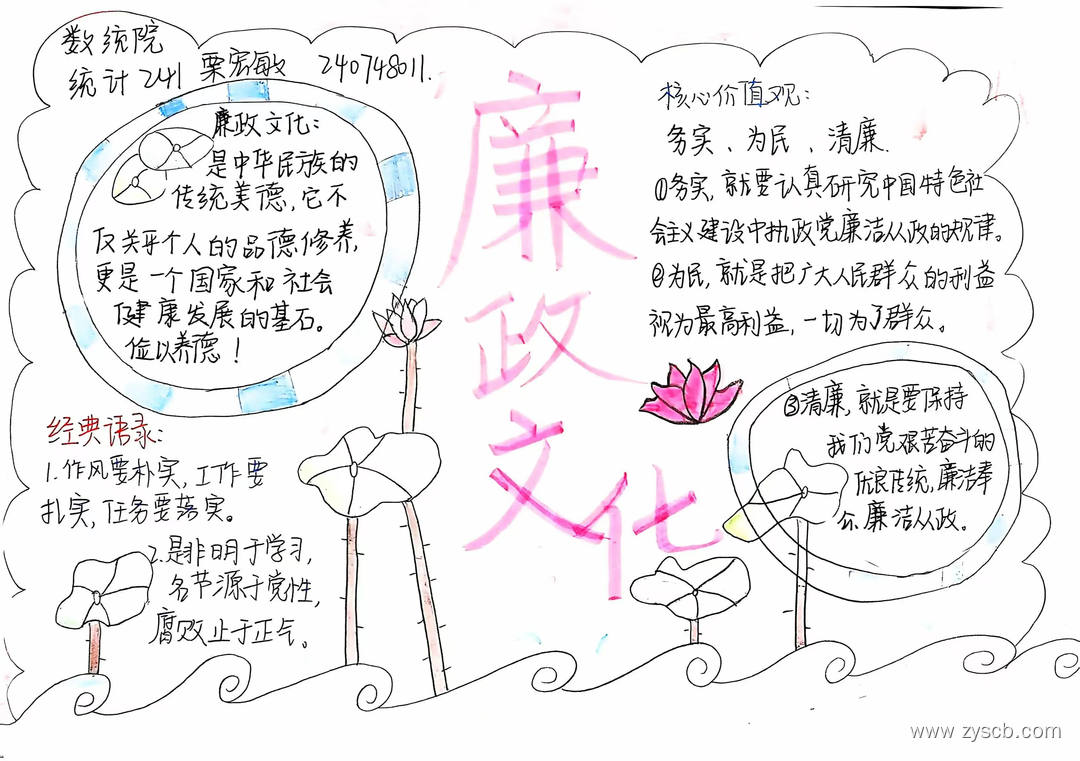 数统院
统计241 栗宏敏 240748011.
廉政文化:
是中华民族的
传统美德,它不
仅关乎个人的品德修养,
更是一个国家和社会
健康发展的基石。
俭以养德!
经典语录:
1.作风要朴实,工作要
扎实,任务要落实。
2.是非明于学习,
名节源于党性,
腐败止于正气。
廉
政
文
化
核心价值观:
务实、为民、清廉.
①务实,就要认真研究中国特色社
会主义建设中执政党廉洁从政的规律。
②为民,就是把广大人民群众的利益
视为最高利益,一切为了群众。
③清廉,就是要保持
我们党艰苦奋斗的
优良传统,廉洁奉
公、廉洁从政。
www.zyscb.com